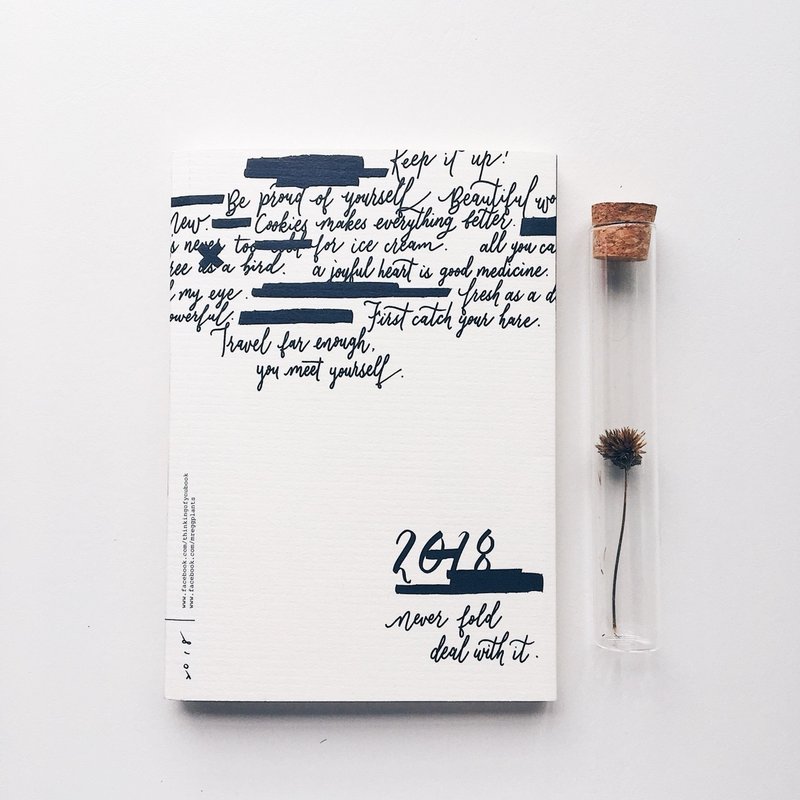 Keep it up!
Be proud of yourself Beautiful wo
New. Cookies makes everything better.
s never too cold for ice cream. all you ca
ree as a bird. a joyful heart is good medicine.
my eye. fresh as a d
owerful. First catch your hare.
Travel far enough,
you meet yourself.
www.facebook.com/thinkingofyoubook
www.facebook.com/mreggplants
2018
2018
never fold
deal with it.